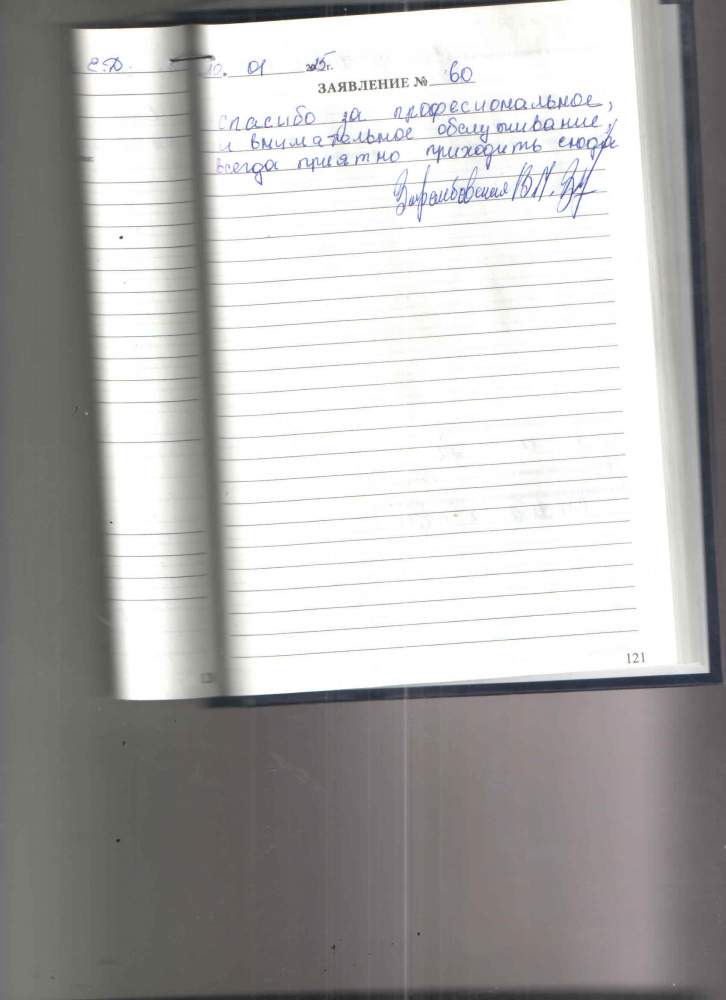 С.Д.
10. 01 2015г.
ЗАЯВЛЕНИЕ № 60
Спасибо за професиональное,
и внимательное обслуживание,
всегда приятно приходить сюда
В.М.
121